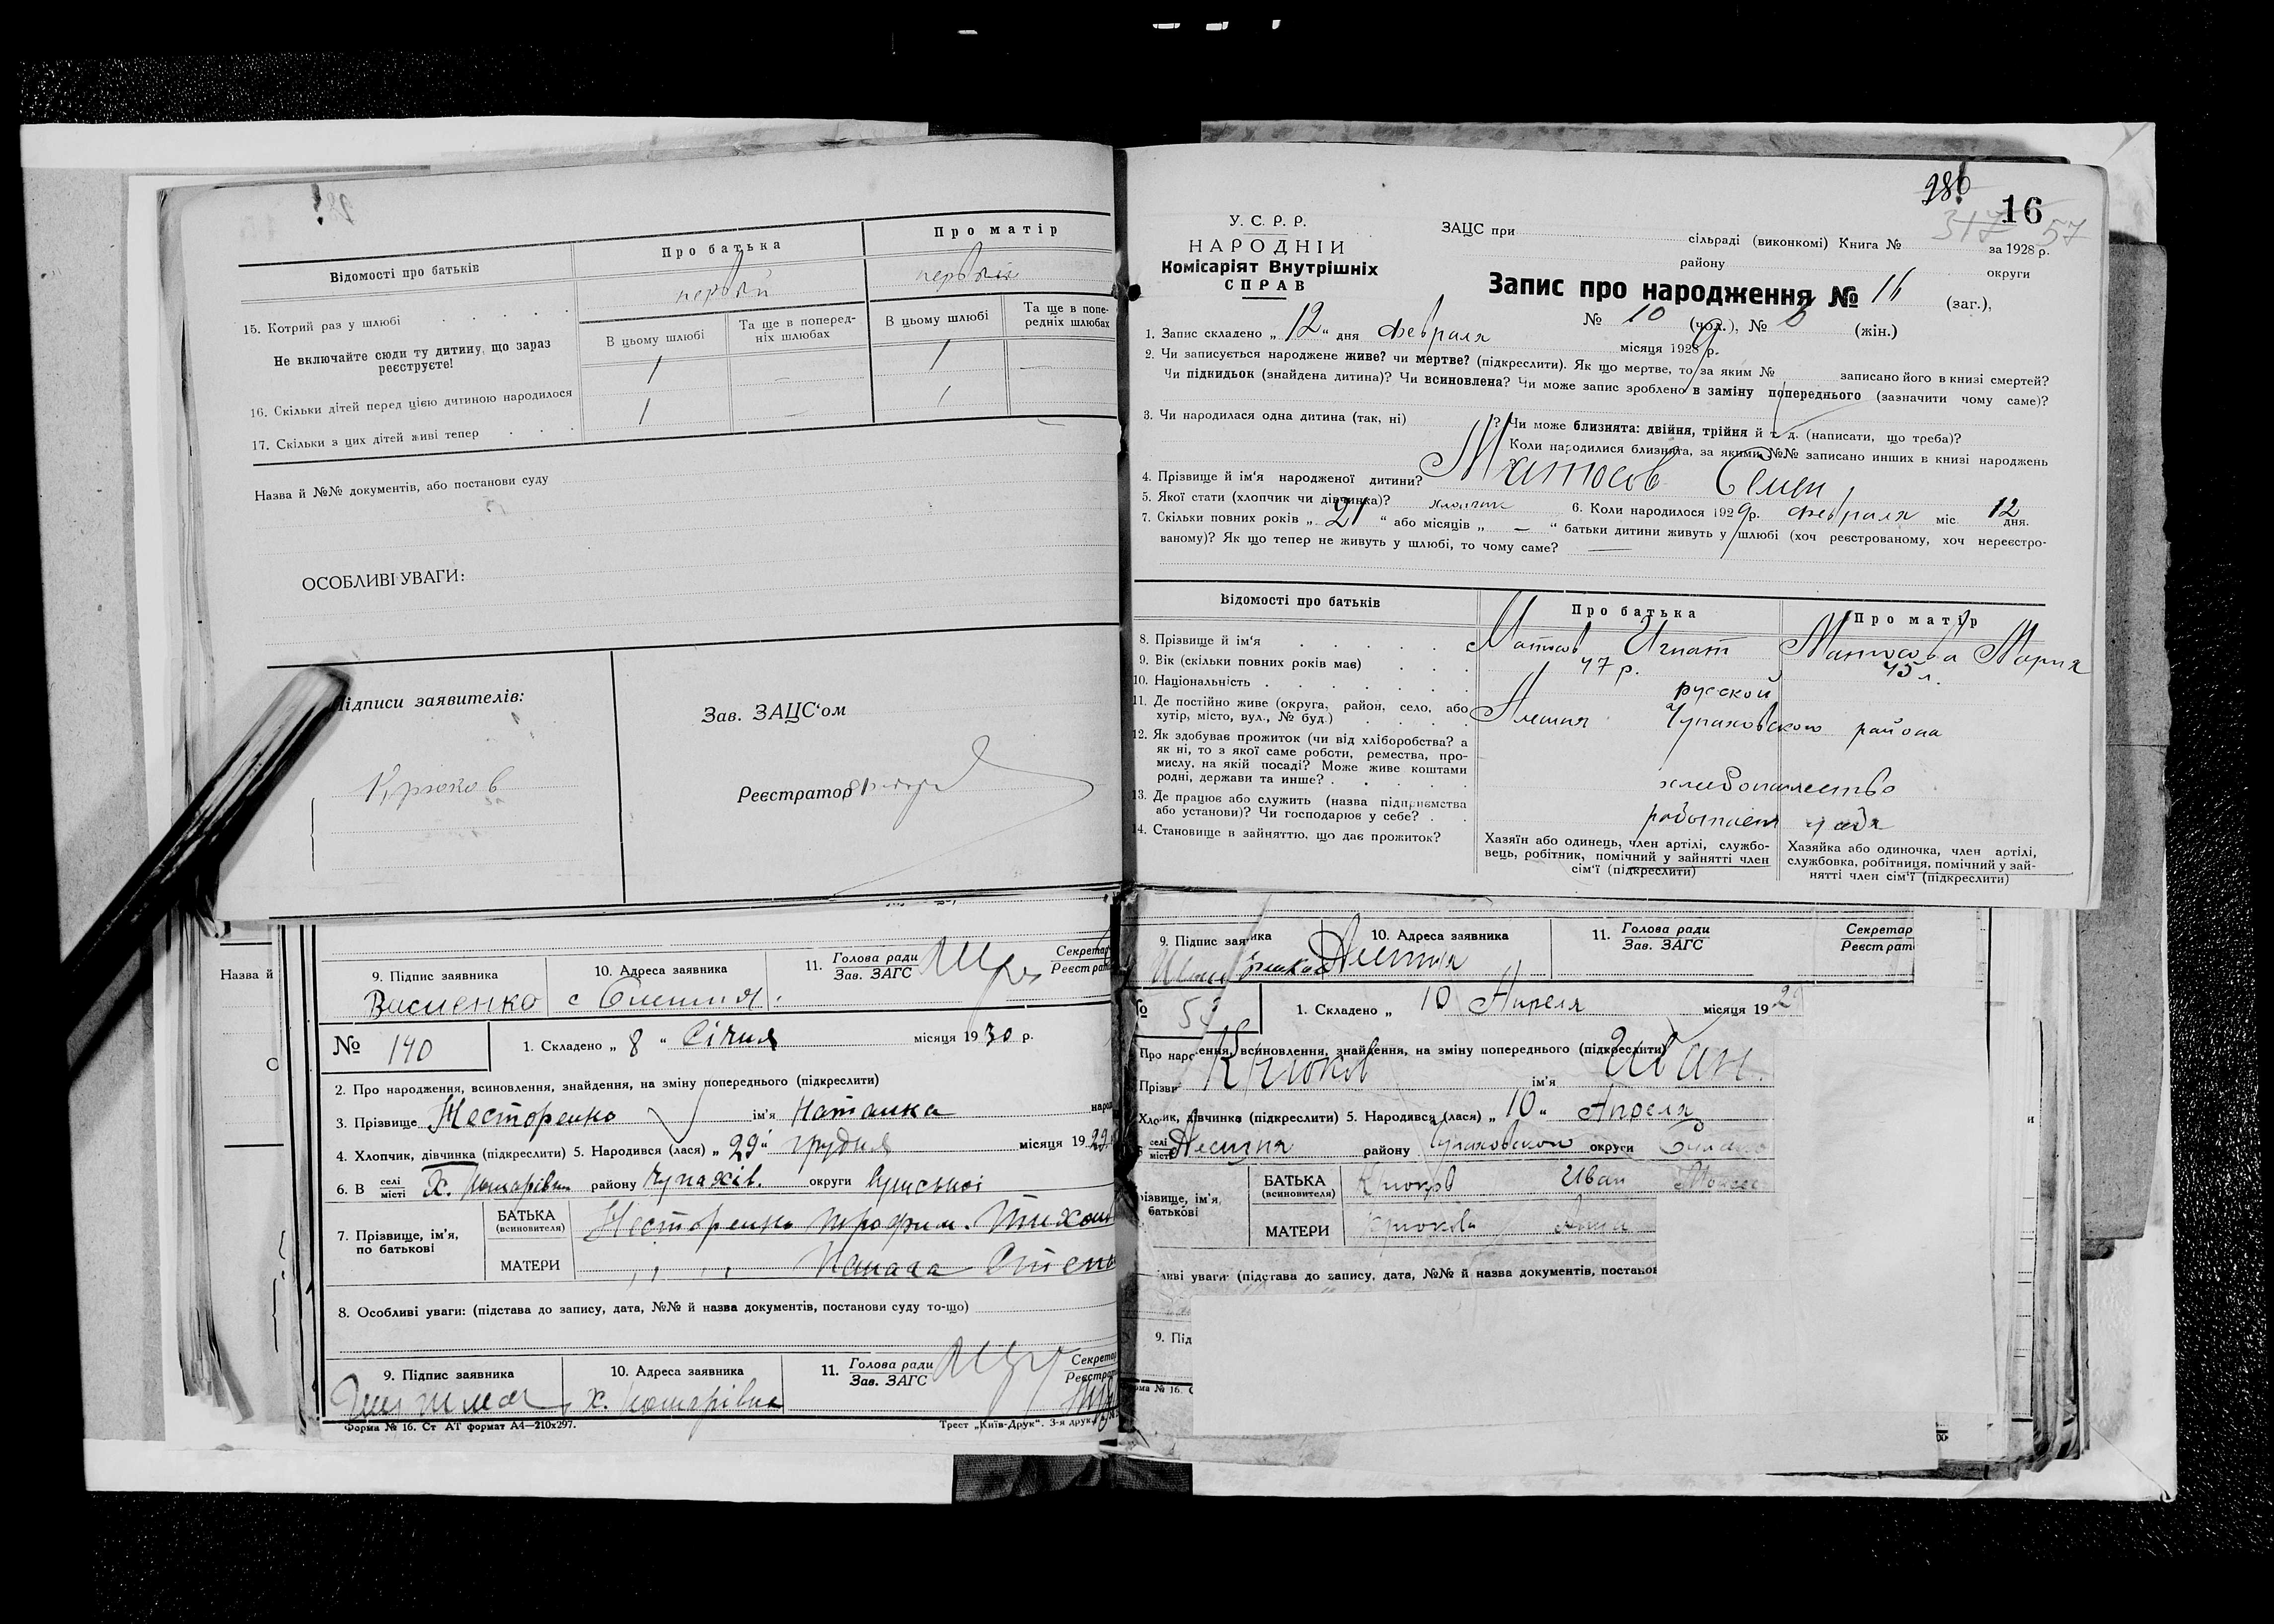 Відомості про батьків
Про батька
Про матір
первый
15. Котрий раз у шлюбі
Не включайте сюди ту дитину, що зараз реєструєте!
В цьому шлюбі
Та ще в поперед-
ніх шлюбах
В цьому шлюбі
Та ще в попе-
редніх шлюбах
16. Скільки дітей перед цією дитиною народилося
1 — 1 —
17. Скільки з цих дітей живі тепер
1 — 1
Назва й №№ документів, або постанови суду
ОСОБЛИВІ УВАГИ:
Підписи заявителів:
Крюков
Зав. ЗАЦС‘ом
Реєстратор
Назва й
9. Підпис заявника
10. Адреса заявника
11. Голова ради
Зав. ЗАГС
Секретар
Василенко
№ 140
1. Складено „ 8 “ Січня місяця 1930 р.
2. Про народження, всиновлення, знайдення, на зміну попереднього (підкреслити)
3. Прізвище Несторенко ім‘я Наталка
4. Хлопчик, дівчинка (підкреслити) 5. Народився (лася) „ 29 “ грудня місяця 1929
6. В селі
місті
х. району Чупахів. округи
7. Прізвище, ім‘я,
по батькові
БАТЬКА
(всиновителя)
Несторенко Трофим
МАТЕРИ
8. Особливі уваги: (підстава до запису, дата, №№ й назва документів, постанови суду то-що)
9. Підпис заявника
10. Адреса заявника
11. Голова ради
Зав. ЗАГС
Форма № 16. Ст АТ формат А4—210х297.
Трест „Київ-Друк“. 3-я друк.
286
16
317
57
У. С. Р. Р.
НАРОДНІЙ
Комісаріят Внутрішніх
СПРАВ
ЗАЦС при сільраді (виконкомі) Книга № за 1928 р.
району округи
Запис про народження № 16 (заг.),
№ 10 (чол.), № 6 (жін.)
1. Запис складено „ 12 “ дня февраля місяця 1929 р.
2. Чи записується народжене живе? чи мертве? (підкреслити). Як що мертве, то за яким № записано його в книзі смертей?
Чи підкидьок (знайдена дитина)? Чи всиновлена? Чи може запис зроблено в заміну попереднього (зазначити чому саме)?
3. Чи народилася одна дитина (так, ні) ? Чи може близнята: двійня, трійня й т. д. (написати, що треба)?
Коли народилися близнята, за якими №№ записано инших в книзі народжень
4. Прізвище й ім‘я народженої дитини? Матюсов Семен
5. Якої стати (хлопчик чи дівчинка)? хлопчик 6. Коли народилося 1929 р. февраля міс. 12 дня.
7. Скільки повних років „ 21 “ або місяців „ — “ батьки дитини живуть у шлюбі (хоч реєстрованому, хоч нереєстро-
ваному)? Як що тепер не живуть у шлюбі, то чому саме? —
Відомості про батьків
Про батька
Про матір
8. Прізвище й ім‘я Матюсов Игнат Матюсова Мария
9. Вік (скільки повних років має) 47 р. 45 л.
10. Національність русской
11. Де постійно живе (округа, район, село, або
хутір, місто, вул., № буд.) Алешня Чупаховского района
12. Як здобуває прожиток (чи від хліборобства? а
як ні, то з якої саме роботи, ремества, про-
мислу, на якій посаді? Може живе коштами
родні, держави та инше?
хлебопашество
13. Де працює або служить (назва підприємства
або установи)? Чи господарює у себе?
работает у себя
14. Становище в зайняттю, що дає прожиток?
Хазяїн або одинець, член артілі, службо-
вець, робітник, помічний у зайнятті член
сім‘ї (підкреслити)
Хазяйка або одиночка, член артілі,
службовка, робітниця, помічний у зай-
нятті член сім‘ї (підкреслити)
9. Підпис заявника
10. Адреса заявника
11. Голова ради
Зав. ЗАГС
Секретар
Алешня
1. Складено „ 10 Апреля місяця 192
Про народження, всиновлення, знайдення, на зміну попереднього (підкреслити)
Крюков ім‘я Иван
дівчинка (підкреслити) 5. Народився (лася) „ 10 “ Апреля
Алешня району Чупаховского округи
БАТЬКА
(всиновителя)
Крюков Иван
батькові
МАТЕРИ
Крюкова
уваги (підстава до запису, дата, №№ й назва документів,
9. Під